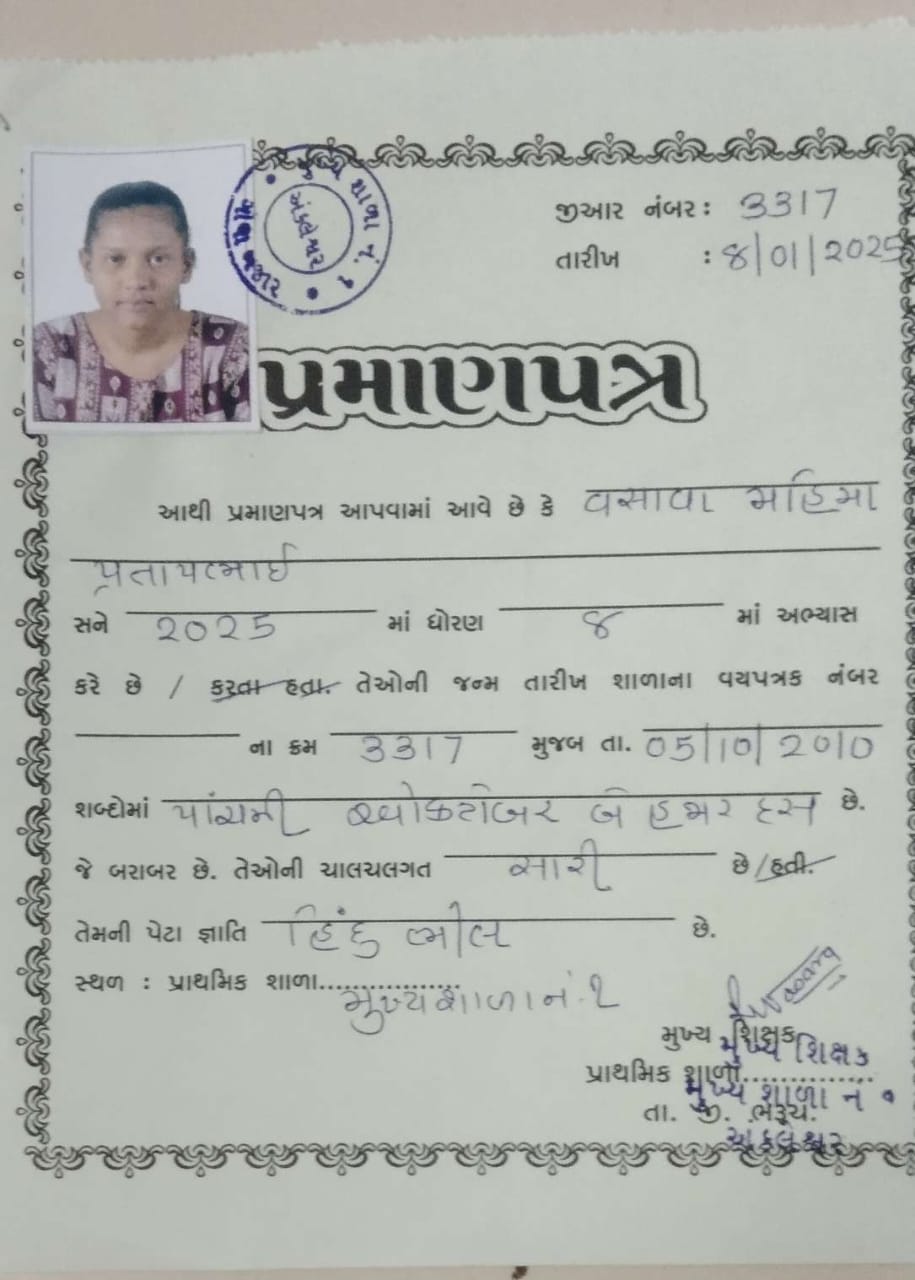 મુખ્ય શાળા નં. ૧
અંકલેશ્વર
જીઆર નંબર : 3317
તારીખ : ૪/01/2025
પ્રમાણપત્ર
આથી પ્રમાણપત્ર આપવામાં આવે છે કે વસાવા મહિમા
પ્રતાપભાઈ
સને 2025 માં ધોરણ ૪ માં અભ્યાસ
કરે છે / કરતા હતા. તેઓની જન્મ તારીખ શાળાના વયપત્રક નંબર
ના ક્રમ 3317 મુજબ તા. 05/10/2010
શબ્દોમાં પાંચમી ઓક્ટોબર બે હજાર દસ છે.
જે બરાબર છે. તેઓની ચાલચલગત સારી છે/હતી.
તેમની પેટા જ્ઞાતિ હિંદુ ભીલ છે.
સ્થળ : પ્રાથમિક શાળા..................
મુખ્યશાળા નં. ૧
મુખ્ય શિક્ષક
મુખ્ય શિક્ષક
પ્રાથમિક શાળા..............
મુખ્ય શાળા નં ૧
તા. જી. ભરૂચ.
અંકલેશ્વર